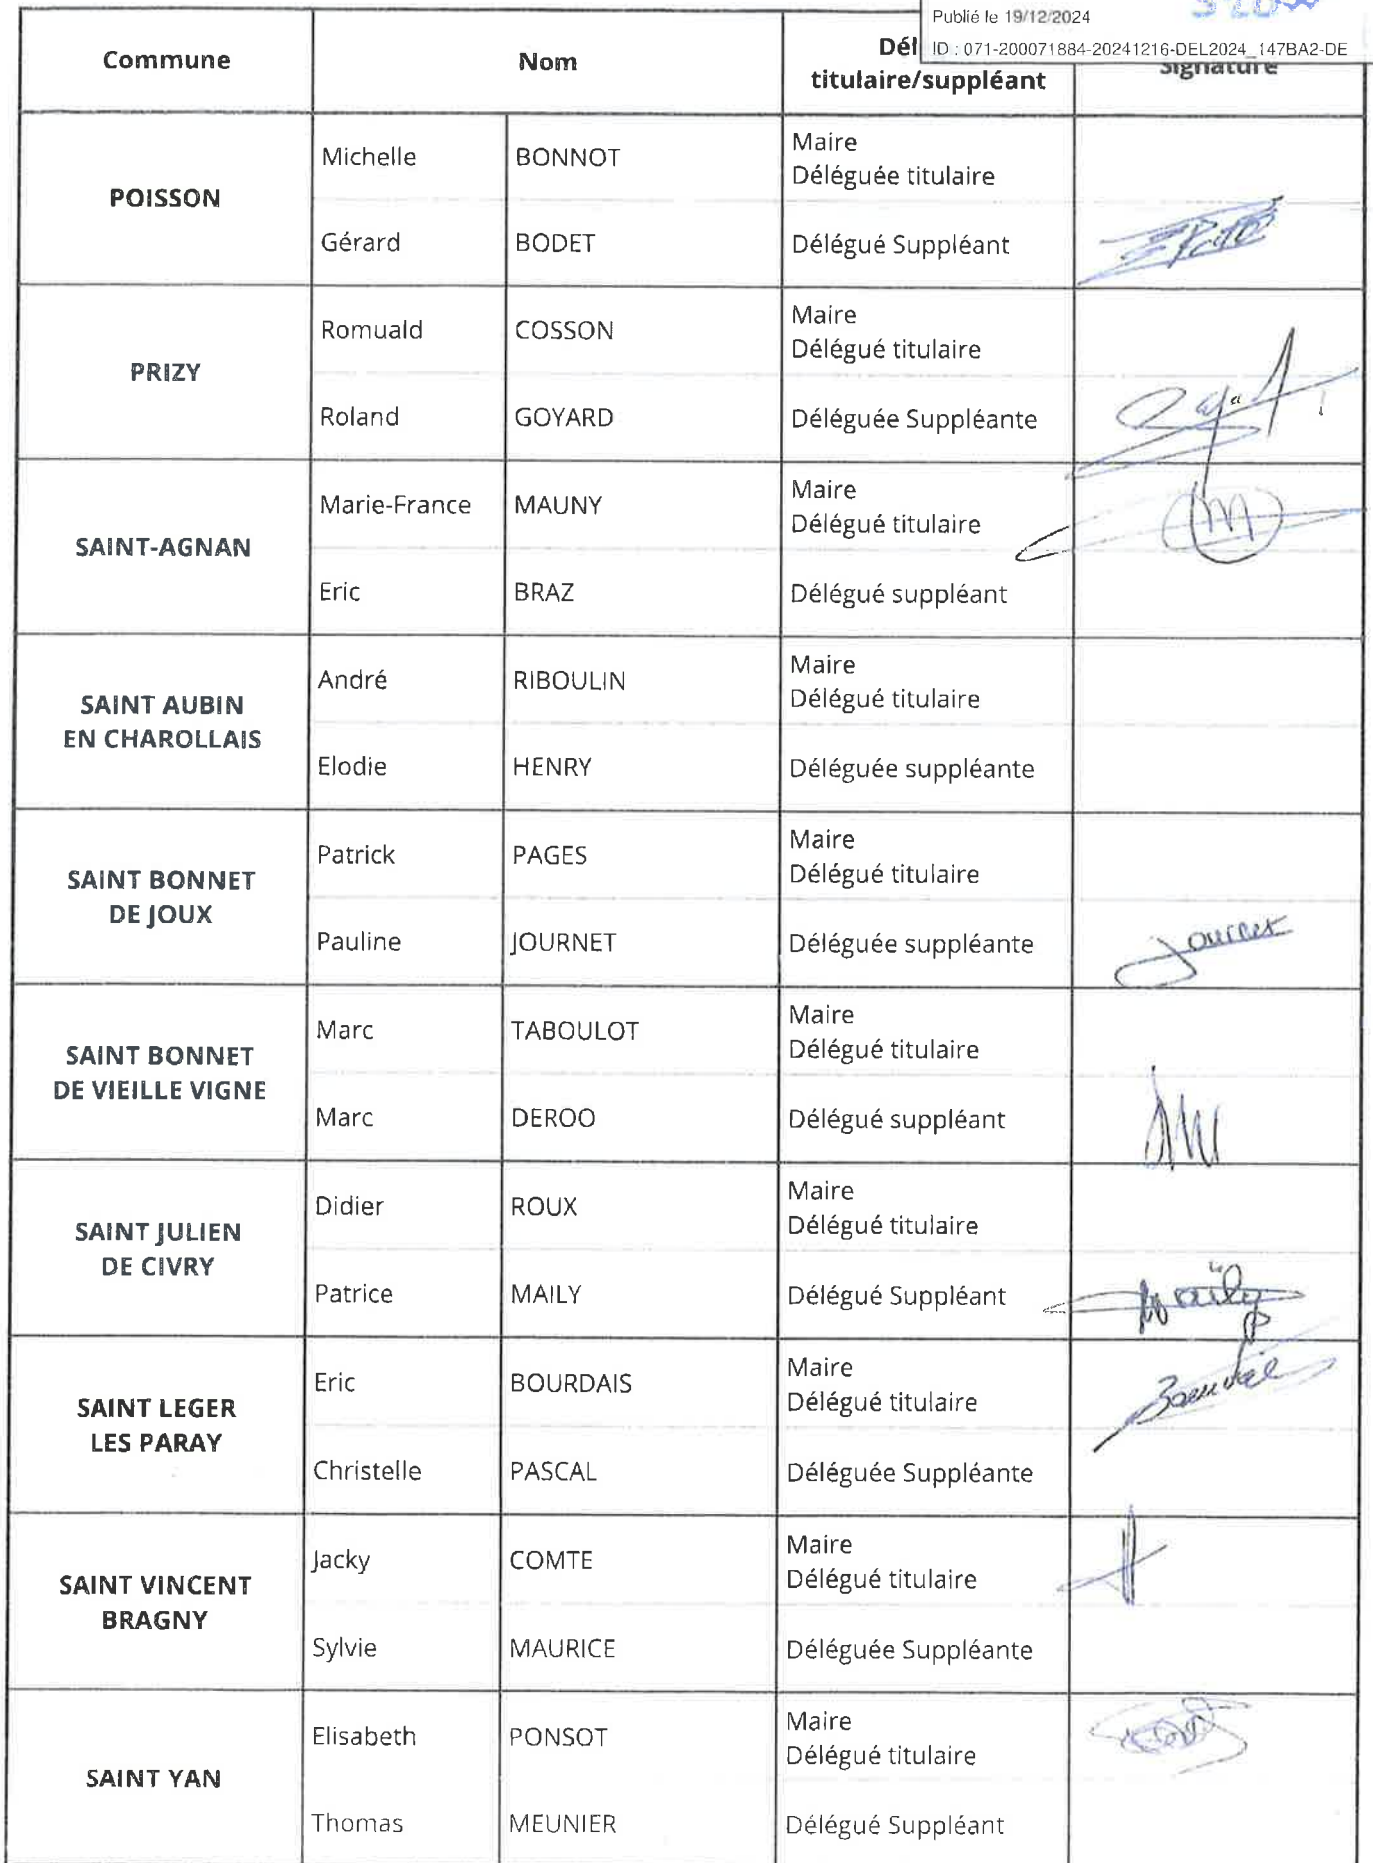 Publié le 19/12/2024
ID : 071-200071884-20241216-DEL2024_147BA2-DE
Commune Nom titulaire/suppléant Signature
POISSON
Michelle BONNOT Maire
Déléguée titulaire
Gérard BODET Délégué Suppléant
PRIZY
Romuald COSSON Maire
Délégué titulaire
Roland GOYARD Déléguée Suppléante
SAINT-AGNAN
Marie-France MAUNY Maire
Délégué titulaire
Eric BRAZ Délégué suppléant
SAINT AUBIN
EN CHAROLLAIS
André RIBOULIN Maire
Délégué titulaire
Elodie HENRY Déléguée suppléante
SAINT BONNET
DE JOUX
Patrick PAGES Maire
Délégué titulaire
Pauline JOURNET Déléguée suppléante Journet
SAINT BONNET
DE VIEILLE VIGNE
Marc TABOULOT Maire
Délégué titulaire
Marc DEROO Délégué suppléant
SAINT JULIEN
DE CIVRY
Didier ROUX Maire
Délégué titulaire
Patrice MAILY Délégué Suppléant Maïly
SAINT LEGER
LES PARAY
Eric BOURDAIS Maire
Délégué titulaire
Christelle PASCAL Déléguée Suppléante
SAINT VINCENT
BRAGNY
Jacky COMTE Maire
Délégué titulaire
Sylvie MAURICE Déléguée Suppléante
SAINT YAN
Elisabeth PONSOT Maire
Délégué titulaire
Thomas MEUNIER Délégué Suppléant